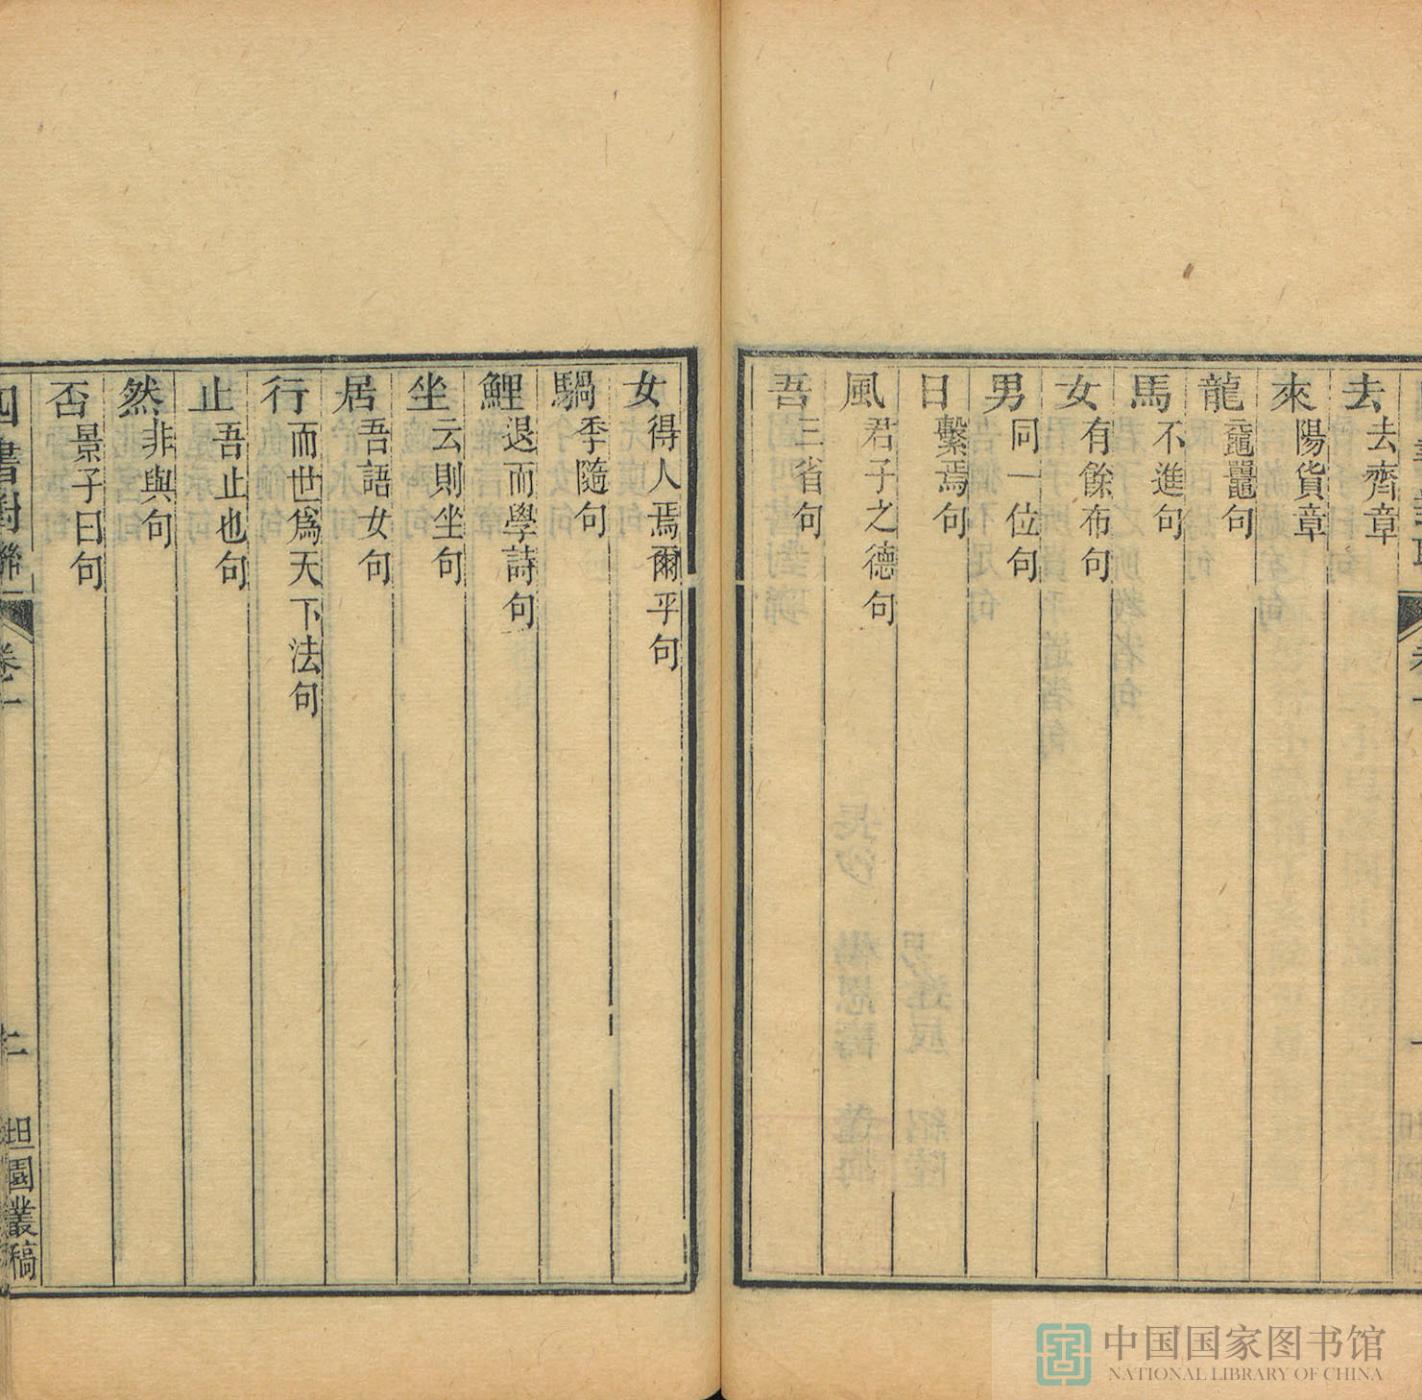 去去齊章
來陽貨章
龍黿鼉句
馬不進句
女有餘布句
男同一位句
日繫焉句
風君子之德句
吾三省句
女得人焉爾乎句
騧季隨句
鯉退而學詩句
坐云則坐句
居吾語女句
行而世爲天下法句
止吾止也句
然非與句
否景子曰句
四書對聯 卷一 二 坦園叢稿
中国国家图书馆
NATIONAL LIBRARY OF CHINA